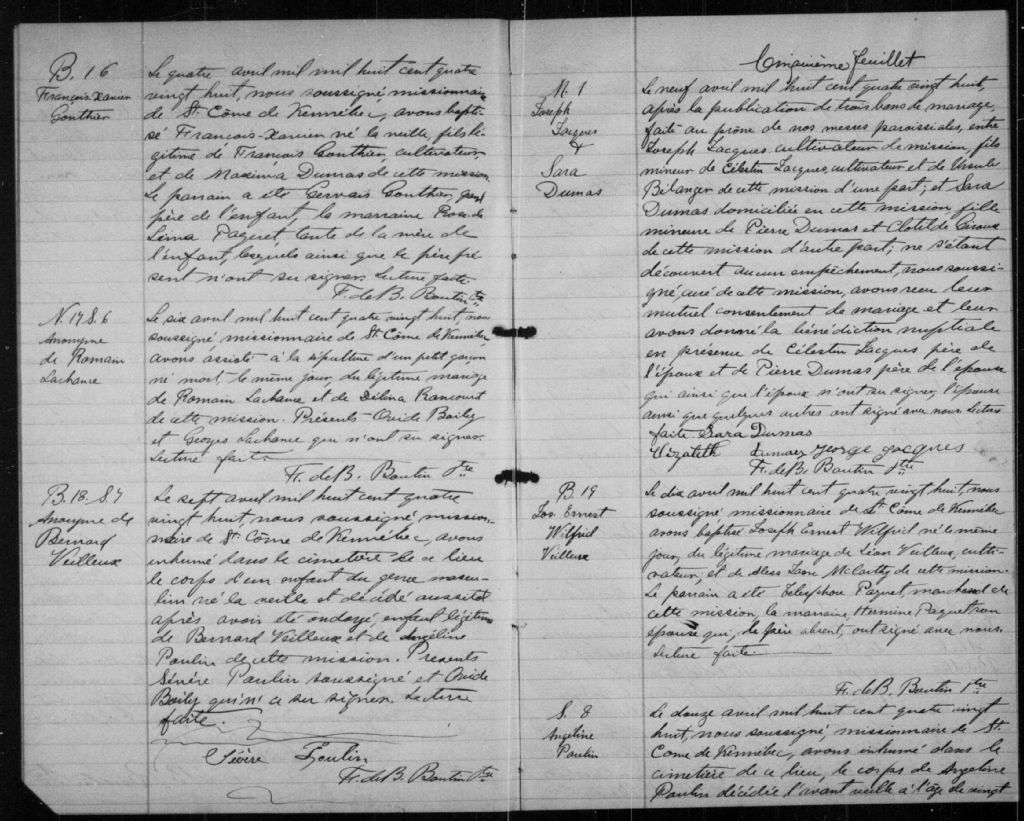 B. 16
François-Xavier
Gonthier
Le quatre avril mil mil huit cent quatre
vingt huit, nous soussigné missionnaire
de St. Côme de Kennébec, avons bapti-
sé François-Xavier né la veille, fils lé-
gitime de François Gonthier, cultivateur,
et de Maxima Dumas de cette mission.
Le parrain a été Gervais Gonthier, grand
père de l'enfant, la marraine Rose de
Lima Paquet, tante de la mère de
l'enfant, lesquels ainsi que le père pré-
sent n'ont su signer. Lecture faite.
F. de B. Boutin Ptre
N. 17 S. 6
Anonyme
de Romain
Lachance
Le six avril mil huit cent quatre vingt huit, nous
soussigné missionnaire de St. Côme de Kennébec,
avons assisté à la sépulture d'un petit garçon
né mort, le même jour, du légitime mariage
de Romain Lachance et de Délina Rancourt
de cette mission. Présents Ovide Baily
et Georges Lachance qui n'ont su signer.
Lecture faite.
F. de B. Boutin Ptre
B. 18. S. 7
Anonyme de
Bernard
Veilleux
Le sept avril mil huit cent quatre
vingt huit, nous soussigné mission-
naire de St. Côme de Kennébec, avons
inhumé dans le cimetière de ce lieu
le corps d'un enfant du genre mascu-
lin né la veille et décédé aussitôt
après avoir été ondoyé, enfant légitime
de Bernard Veilleux et de Angéline
Poulin de cette mission. Présents
Sévère Poulin soussigné et Ovide
Baily qui n'a su signer. Lecture
faite.
Sévère Poulin
F. de B. Boutin Ptre
Cinquième feuillet
M. 1
Joseph
Jacques
&
Sara
Dumas
Le neuf avril mil huit cent quatre vingt huit,
après la publication de trois bans de mariage,
faite au prône de nos messes paroissiales, entre
Joseph Jacques cultivateur de mission, fils
mineur de Célestin Jacques, cultivateur et de Ursule
Bilanger de cette mission d'une part; et Sara
Dumas domiciliée en cette mission fille
mineure de Pierre Dumas et Clotilde Giroux
de cette mission d'autre part; ne s'étant
découvert aucun empêchement, nous soussi-
gné, curé de cette mission, avons reçu leur
mutuel consentement de mariage et leur
avons donné la bénédiction nuptiale
en présence de Célestin Jacques père de
l'époux et de Pierre Dumas père de l'épouse
qui ainsi que l'époux n'ont su signer, l'épouse
ainsi que quelques autres ont signé avec nous. Lecture
faite. Sara Dumas
Elizabeth Dumas George Jacques
F. de B. Boutin Ptre
B. 19
Jos. Ernest
Wilfrid
Veilleux
Le dix avril mil huit cent quatre vingt huit, nous
soussigné missionnaire de St. Côme de Kennébec
avons baptisé Joseph Ernest Wilfrid né le même
jour, du légitime mariage de Léon Veilleux, culti-
vateur, et de McCarthy de cette mission.
Le parrain a été Télesphore Paquet, marchand de
cette mission, la marraine, Hermine Paquet son
épouse qui, le père absent, ont signé avec nous.
Lecture faite
F. de B. Boutin Ptre
S. 8
Angéline
Poulin
Le douze avril mil huit cent quatre vingt
huit, nous soussigné, missionnaire de St.
Come de Kennébec, avons inhumé dans le
cimetière de ce lieu, le corps de Angéline
Poulin décédée l'avant veille à l'âge de vingt